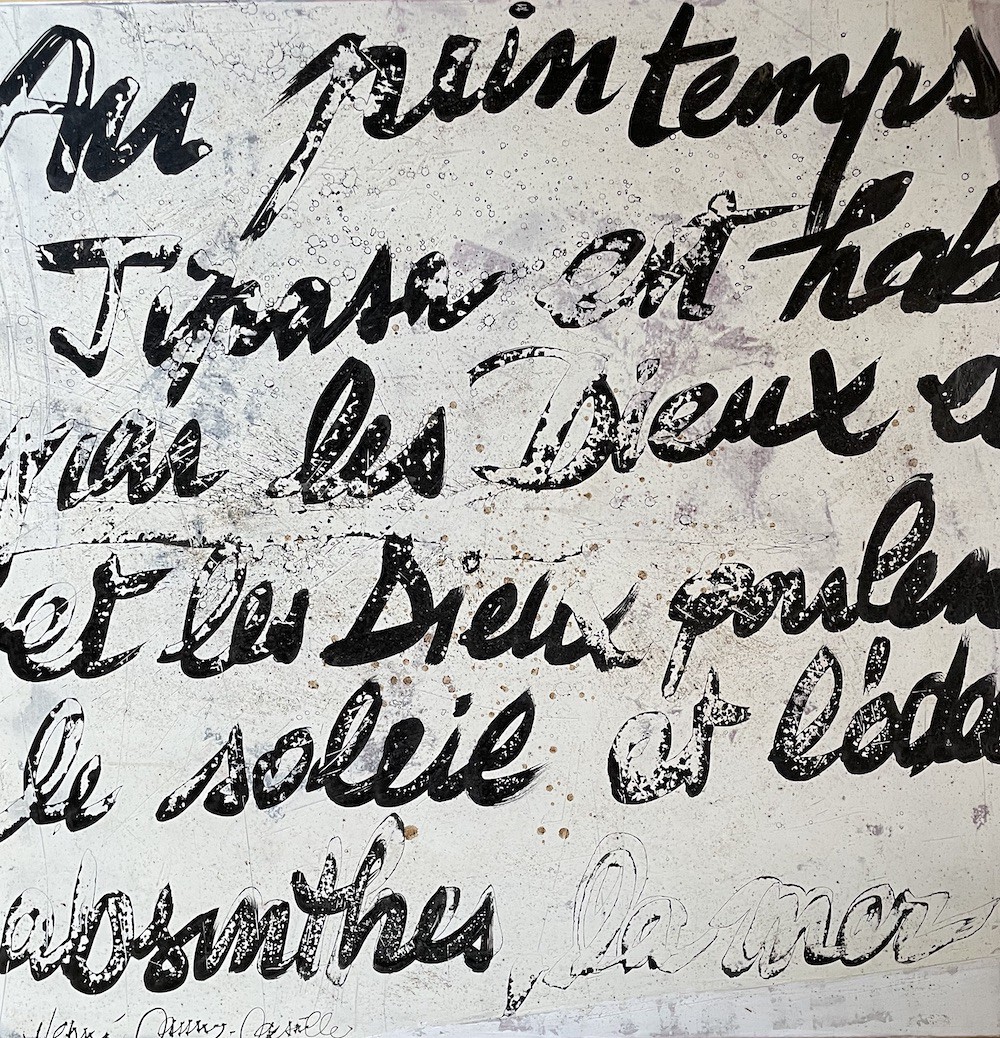 Au printemps
Tipasa est hab
par les Dieux e
et les Dieux parlen
le soleil et l'ode
absinthes la mer